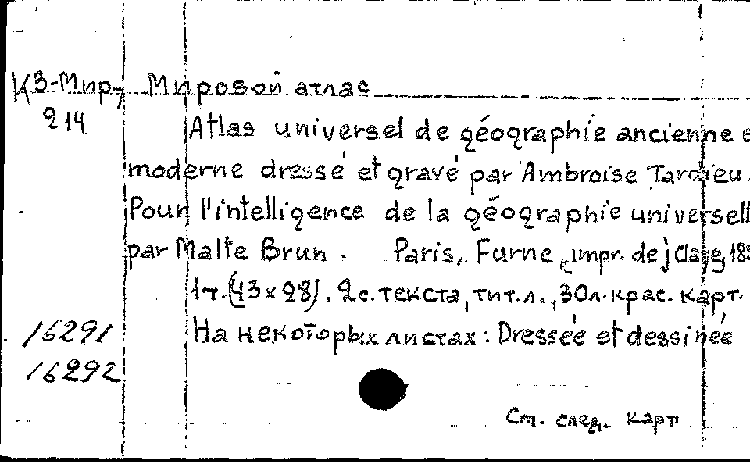 К3-Мир-7 Мировой атлас
214 Atlas universel de géographie ancienne e
moderne dressé et gravé par Ambroise Tardieu.
Pour l'intelligence de la géographie universell
par Malte Brun. Paris, Furne, impr. de j Claye, 18
1т. (43 x 28). 2 с. текста, тит. л., 30 л. крас. карт.
16291 На некоторых листах: Dressée et dessinée
16292
См. след. карт